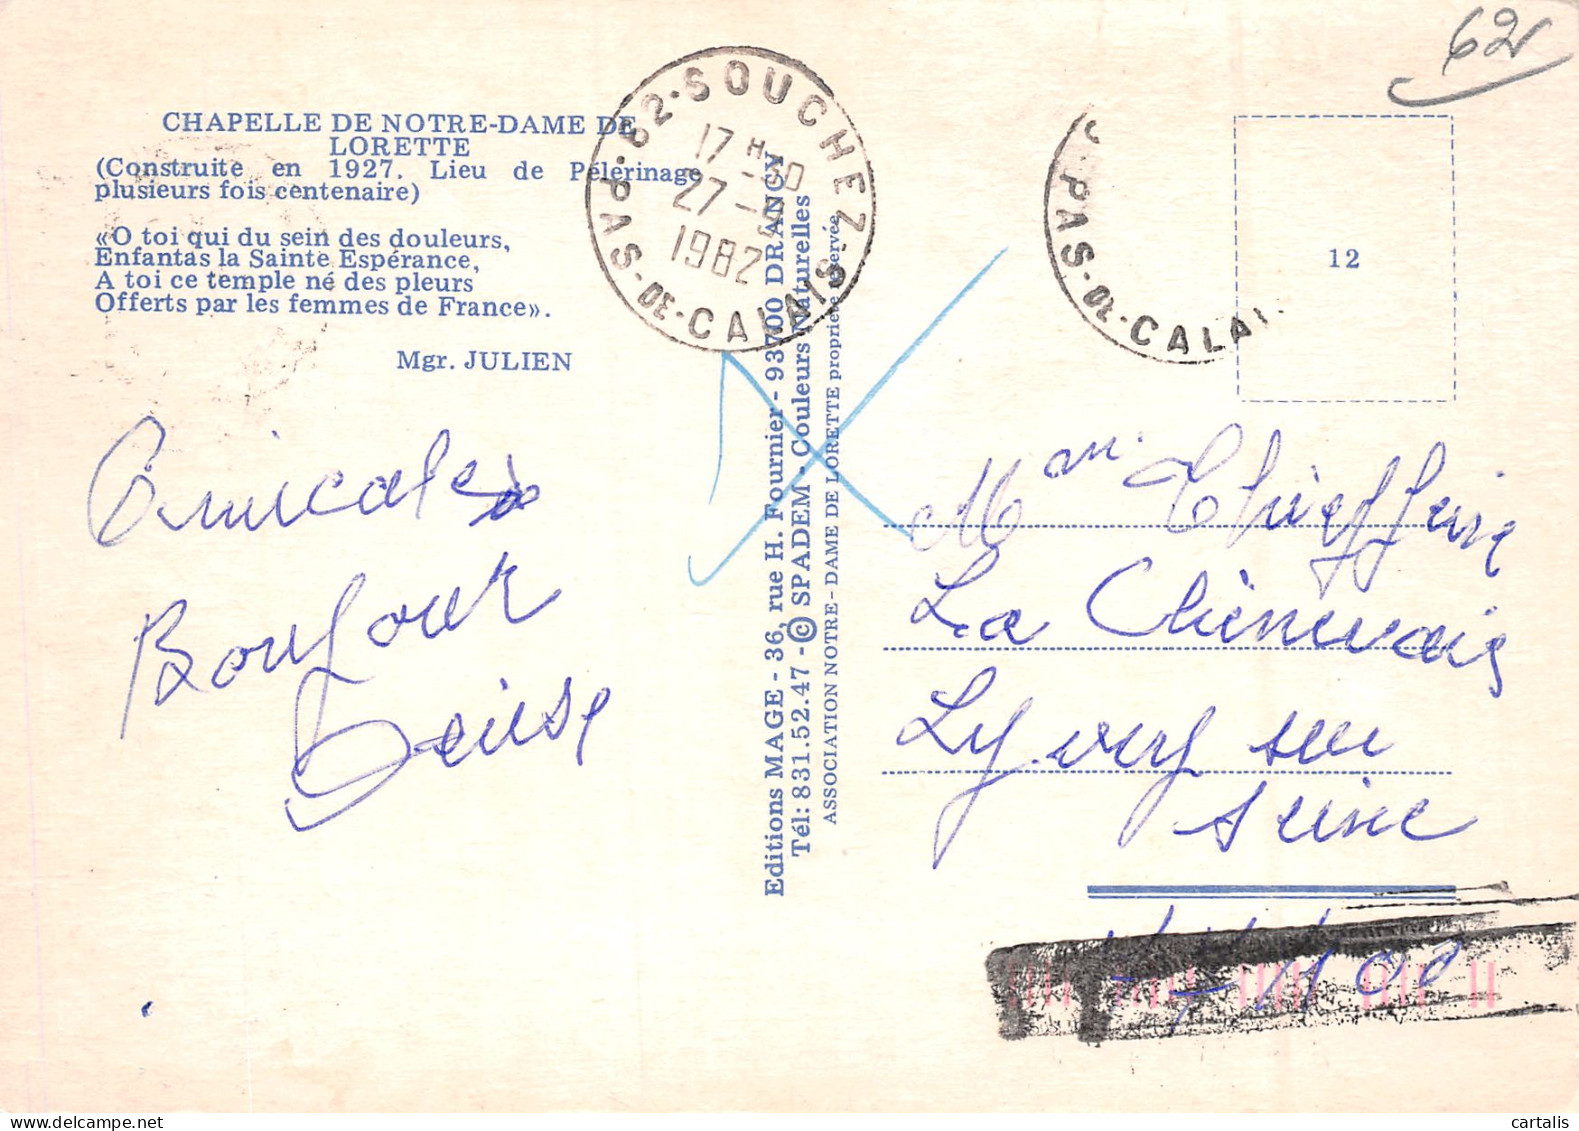 62
CHAPELLE DE NOTRE-DAME DE
LORETTE
(Construite en 1927. Lieu de Pélerinage
plusieurs fois centenaire)
«O toi qui du sein des douleurs,
Enfantas la Sainte Espérance,
A toi ce temple né des pleurs
Offerts par les femmes de France».
Mgr. JULIEN
62-SOUCHEZ
17 H
27 -
1982
PAS-DE-CALAIS
PAS-DE-CALAI
12
Amicales
Bonjour
Denise
Editions MAGE - 36, rue H. Fournier - 93700 DRANCY
Tél: 831.52.47 - © SPADEM - Couleurs Naturelles
ASSOCIATION NOTRE-DAME DE LORETTE propriété réservée
La
sur
Seine
cartalis